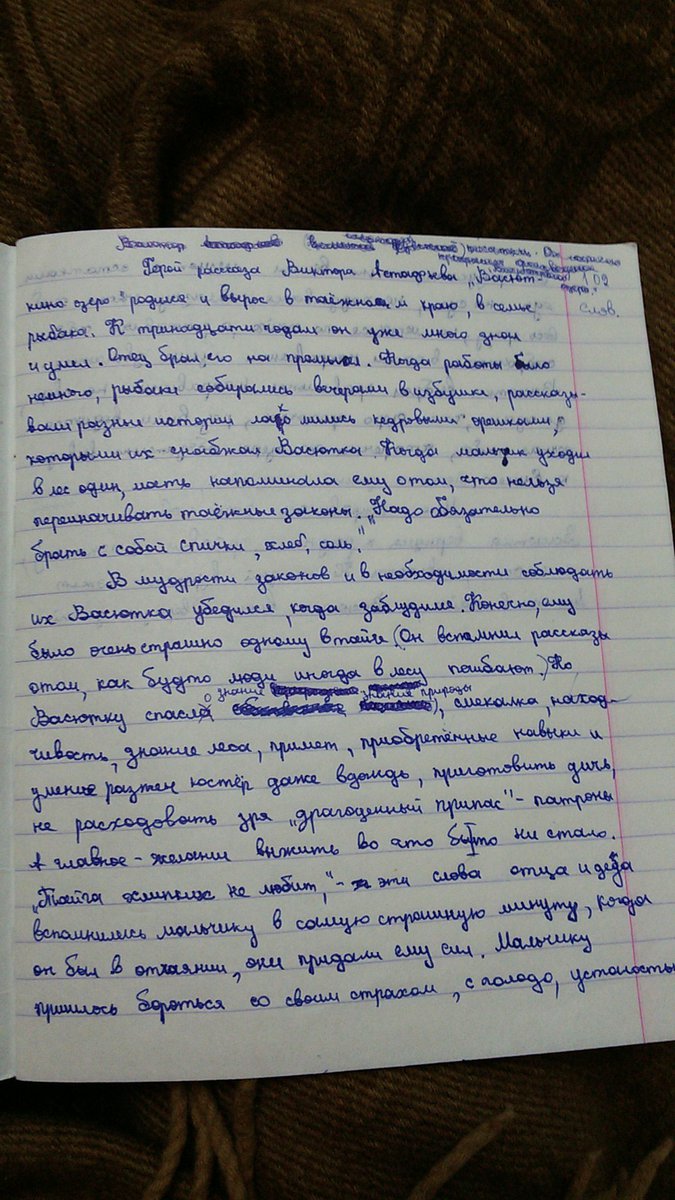 писатель. Он
прекрасных произведения
"Васюткино
озеро".
109
слов.
Герой рассказа Виктора Астафьева „Васют-
кино озеро" родился и вырос в таёжном краю, в семье
рыбака. К тринадцати годам он уже много знал
и умел. Отец брал его на промысел. Когда работы было
немного, рыбаки собирались вечерами в избушке, рассказы-
вали разные истории лакомились кедровыми орешками,
которыми их снабжал Васютка. Когда мальчик уходил
в лес один, мать напоминала ему о том, что нельзя
переиначивать таёжные законы: „Надо обязательно
брать с собой спички, хлеб, соль."
В мудрости законов и в необходимости соблюдать
их Васютка убедился, когда заблудился. Конечно, ему
было очень страшно одному в тайге (Он вспомнил рассказы
о том, как будто люди иногда в лесу погибают.) Но
знание природы
Васютку спасло смекалка, наход-
чивость, знание леса, примет, приобретённые навыки и
умение разжеч костёр даже вдождь, приготовить дичь,
не расходовать зря „драгоценный припас" - патроны
А главное - желание выжить во что бы то ни стало.
„Тайга хлипких не любит," - эти слова отца и деда
вспомнились мальчику в самую страшную минуту, когда
он был в отчаянии, они придали ему сил. Мальчику
пришлось бороться со своим страхом, с голодо, усталостью